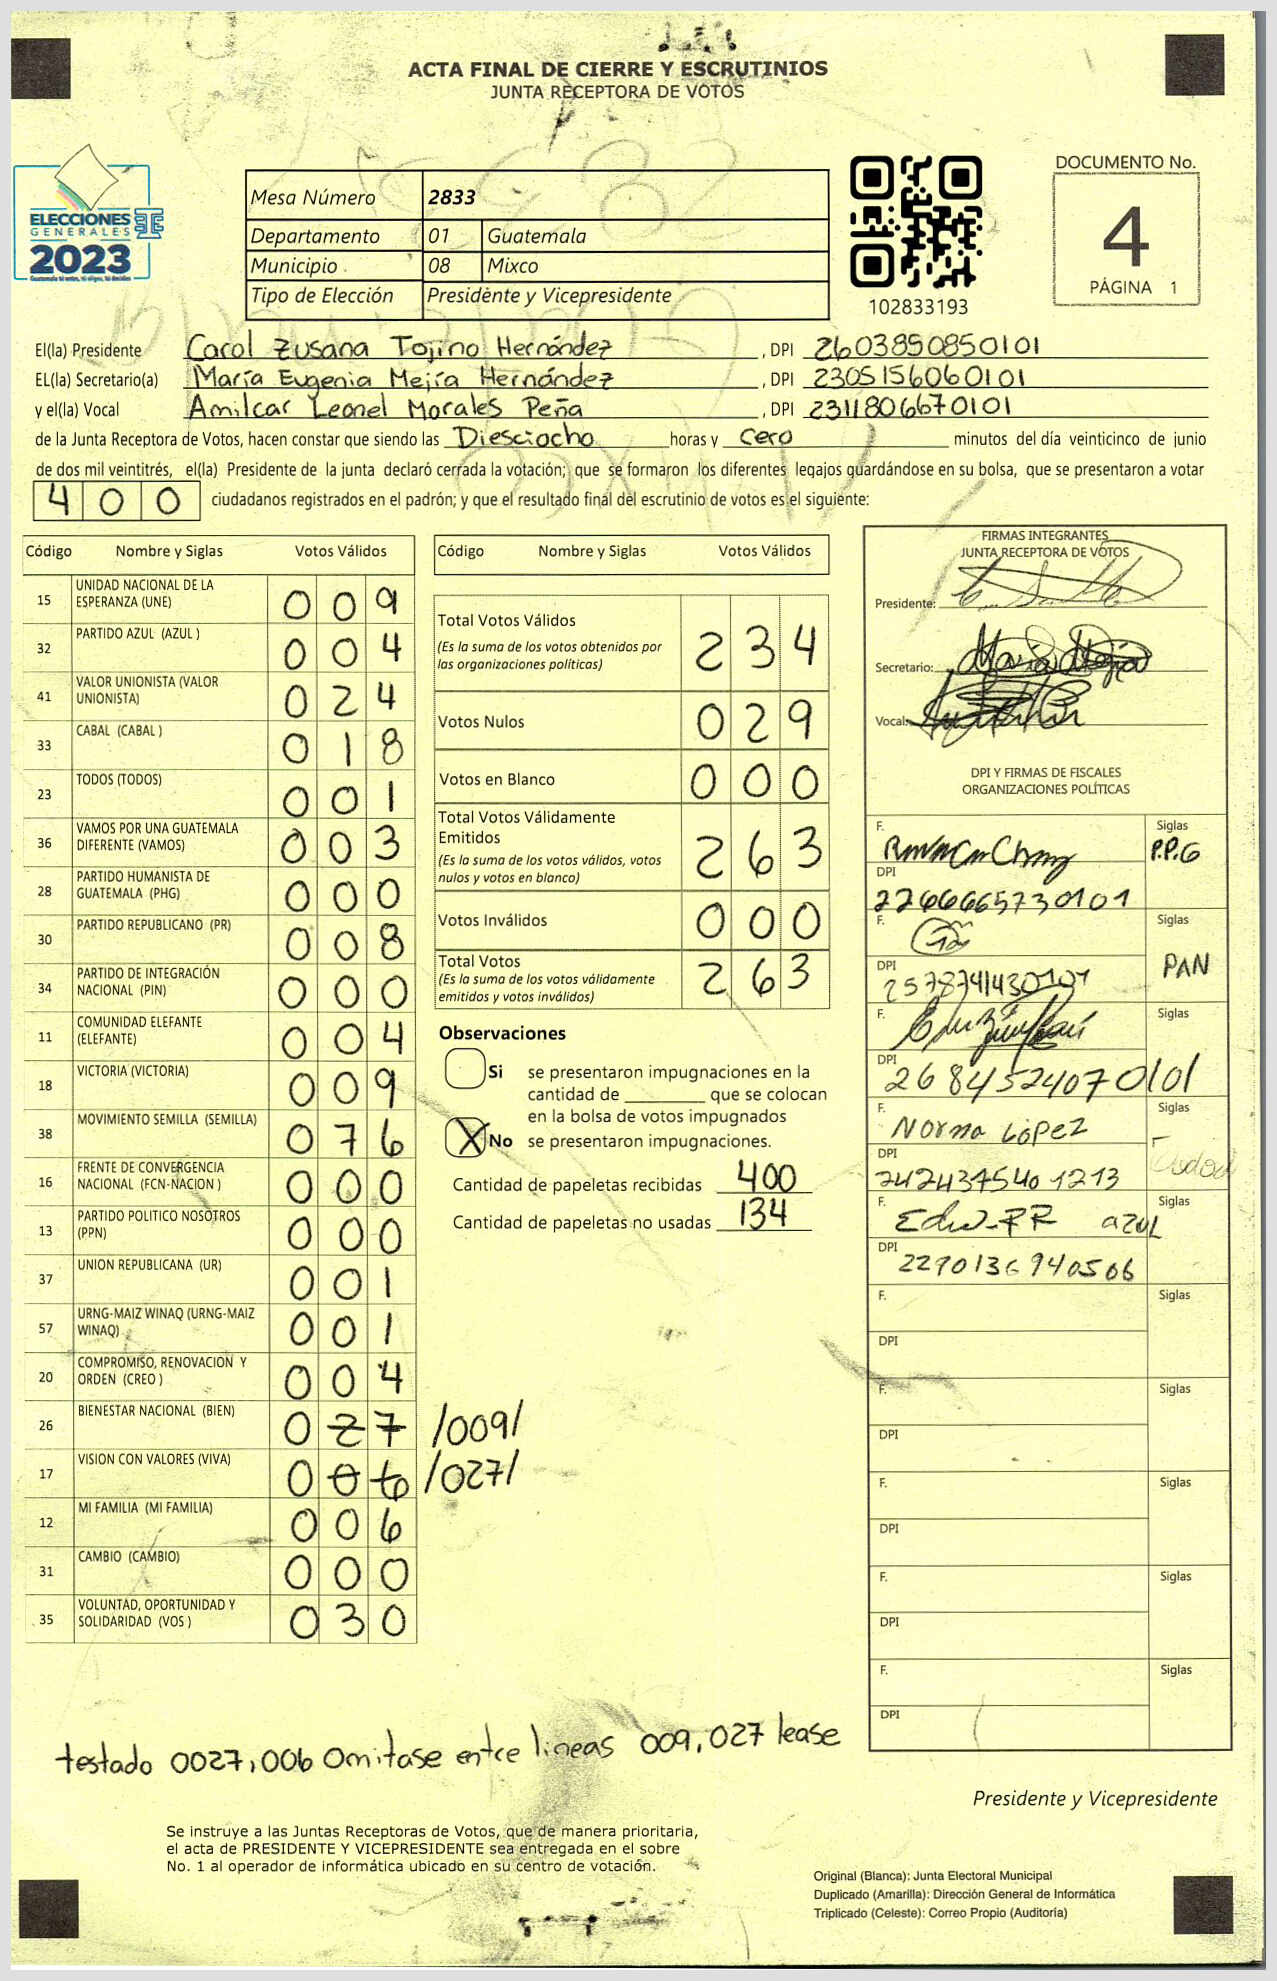 ACTA FINAL DE CIERRE Y ESCRUTINIOS
JUNTA RECEPTORA DE VOTOS
ELECCIONES
GENERALES
2023
Mesa Número 2833
Departamento 01 Guatemala
Municipio 08 Mixco
Tipo de Elección Presidente y Vicepresidente
102833193
DOCUMENTO No.
4
PÁGINA 1
El(la) Presidente Carol Zusana Tojino Hernández, DPI 2603850850101
EL(la) Secretario(a) María Eugenia Mejía Hernández, DPI 2305156060101
y el(la) Vocal Amilcar Leonel Morales Peña, DPI 2311806670101
de la Junta Receptora de Votos, hacen constar que siendo las Diesciocho horas y cero minutos del día veinticinco de junio
de dos mil veintitrés, el(la) Presidente de la junta declaró cerrada la votación; que se formaron los diferentes legajos guardándose en su bolsa, que se presentaron a votar
400 ciudadanos registrados en el padrón; y que el resultado final del escrutinio de votos es el siguiente:
Código Nombre y Siglas Votos Válidos
15 UNIDAD NACIONAL DE LA ESPERANZA (UNE) 009
32 PARTIDO AZUL (AZUL ) 004
41 VALOR UNIONISTA (VALOR UNIONISTA) 024
33 CABAL (CABAL ) 018
23 TODOS (TODOS) 001
36 VAMOS POR UNA GUATEMALA DIFERENTE (VAMOS) 003
28 PARTIDO HUMANISTA DE GUATEMALA (PHG) 000
30 PARTIDO REPUBLICANO (PR) 008
34 PARTIDO DE INTEGRACIÓN NACIONAL (PIN) 000
11 COMUNIDAD ELEFANTE (ELEFANTE) 004
18 VICTORIA (VICTORIA) 009
38 MOVIMIENTO SEMILLA (SEMILLA) 076
16 FRENTE DE CONVERGENCIA NACIONAL (FCN-NACION ) 000
13 PARTIDO POLITICO NOSOTROS (PPN) 000
37 UNION REPUBLICANA (UR) 001
57 URNG-MAIZ WINAQ (URNG-MAIZ WINAQ) 001
20 COMPROMISO, RENOVACION Y ORDEN (CREO ) 004
26 BIENESTAR NACIONAL (BIEN) 027 /009/
17 VISION CON VALORES (VIVA) 006 /027/
12 MI FAMILIA (MI FAMILIA) 006
31 CAMBIO (CAMBIO) 000
35 VOLUNTAD, OPORTUNIDAD Y SOLIDARIDAD (VOS ) 030
Código Nombre y Siglas Votos Válidos
Total Votos Válidos 234
(Es la suma de los votos obtenidos por
las organizaciones políticas)
Votos Nulos 029
Votos en Blanco 000
Total Votos Válidamente
Emitidos 263
(Es la suma de los votos válidos, votos
nulos y votos en blanco)
Votos Inválidos 000
Total Votos 263
(Es la suma de los votos válidamente
emitidos y votos inválidos)
Observaciones
Si se presentaron impugnaciones en la
cantidad de ________ que se colocan
en la bolsa de votos impugnados
X No se presentaron impugnaciones.
Cantidad de papeletas recibidas 400
Cantidad de papeletas no usadas 134
FIRMAS INTEGRANTES
JUNTA RECEPTORA DE VOTOS
Presidente:
Secretario: María Mejía
Vocal:
DPI Y FIRMAS DE FISCALES
ORGANIZACIONES POLÍTICAS
F. Siglas P.P.G
DPI 2266665730101
F. Siglas PAN
DPI
F. Siglas
DPI 2684524070101
F. Norma López Siglas
DPI 2424375401213
F. azul Siglas
DPI 2290136940506
F. Siglas
DPI
F. Siglas
DPI
F. Siglas
DPI
F. Siglas
DPI
F. Siglas
DPI
testado 0027,006 Omitase entre lineas 009,027 lease
Presidente y Vicepresidente
Se instruye a las Juntas Receptoras de Votos, que de manera prioritaria,
el acta de PRESIDENTE Y VICEPRESIDENTE sea entregada en el sobre
No. 1 al operador de informática ubicado en su centro de votación.
Original (Blanca): Junta Electoral Municipal
Duplicado (Amarilla): Dirección General de Informática
Triplicado (Celeste): Correo Propio (Auditoría)